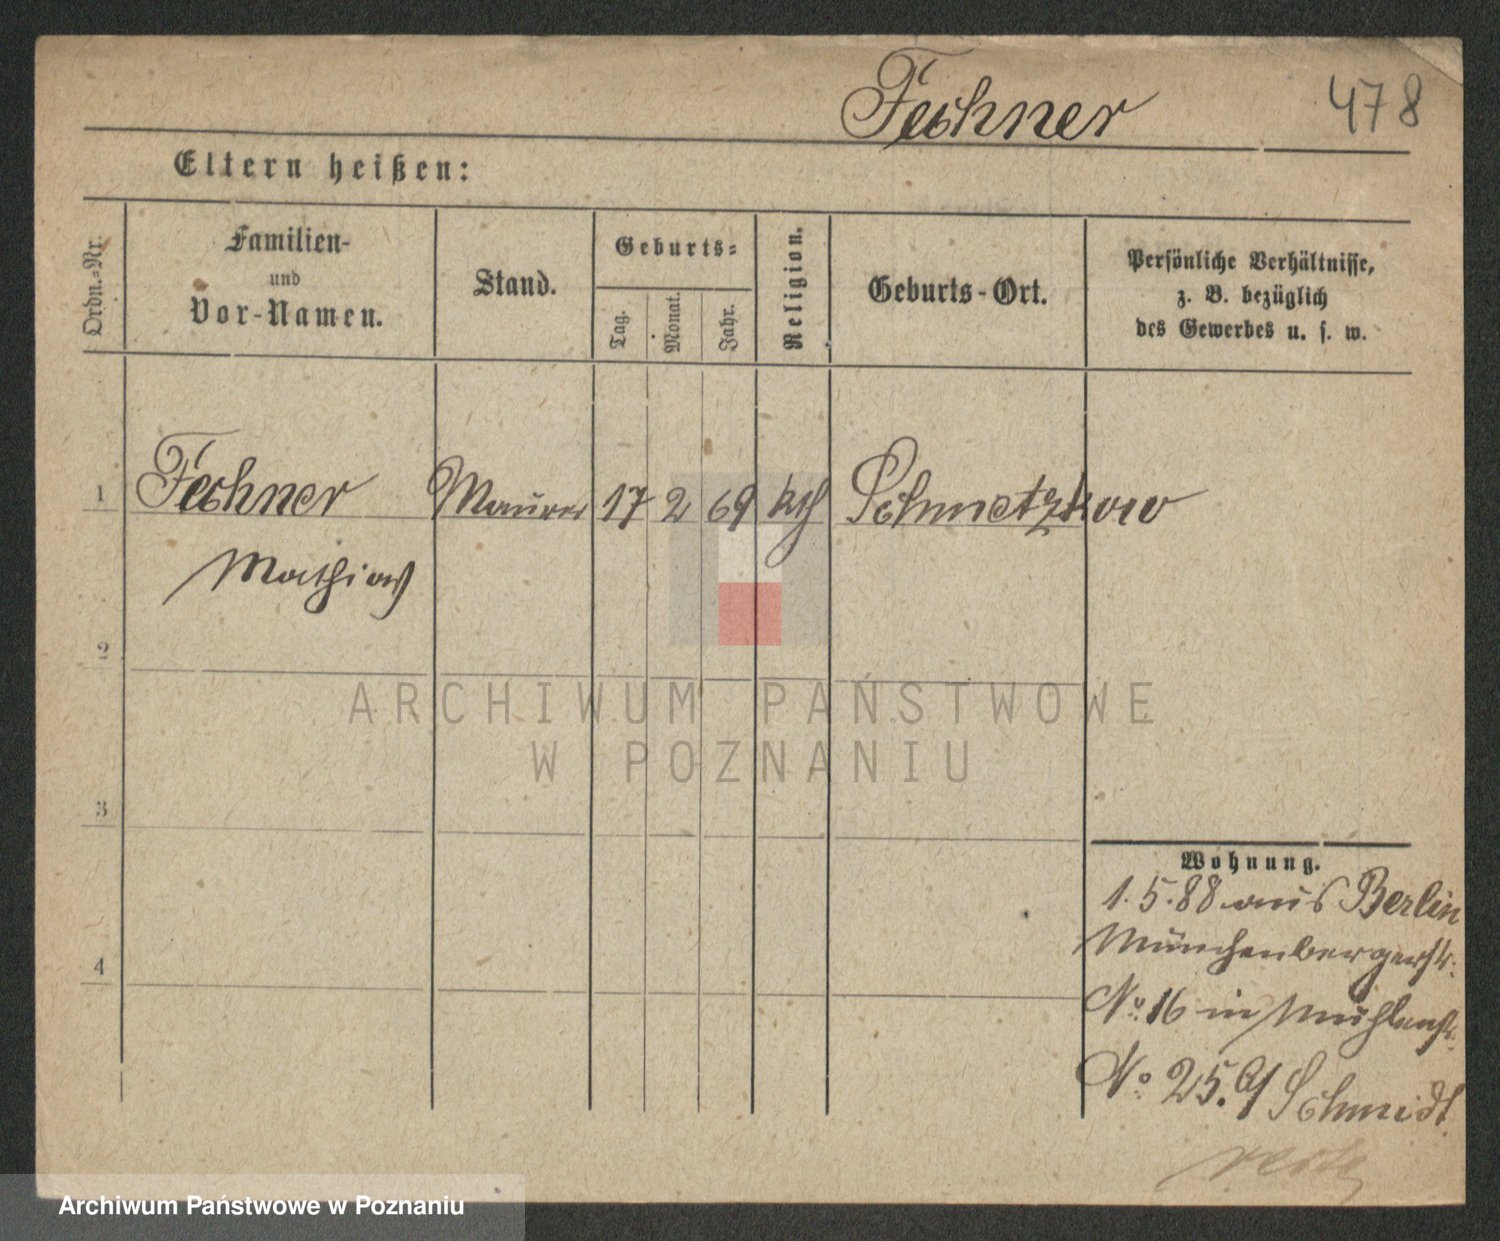 Fechner 478
Eltern heißen:
Ordn.-Nr.
Familien-
und
Vor-Namen.
Stand.
Geburts-
Tag.
Monat.
Jahr.
Religion.
Geburts-Ort.
Persönliche Verhältnisse,
z. B. bezüglich
des Gewerbes u. s. w.
1 Fechner Maurer 17 2 69 kth Schmetzkow
Mathias
2
ARCHIWUM PAŃSTWOWE
W POZNANIU
3
Wohnung.
1.5.88 aus Berlin
Münchenbergerstr.
4
No 16 in Mühlenstr.
No 25. b/ Schmidt
Archiwum Państwowe w Poznaniu